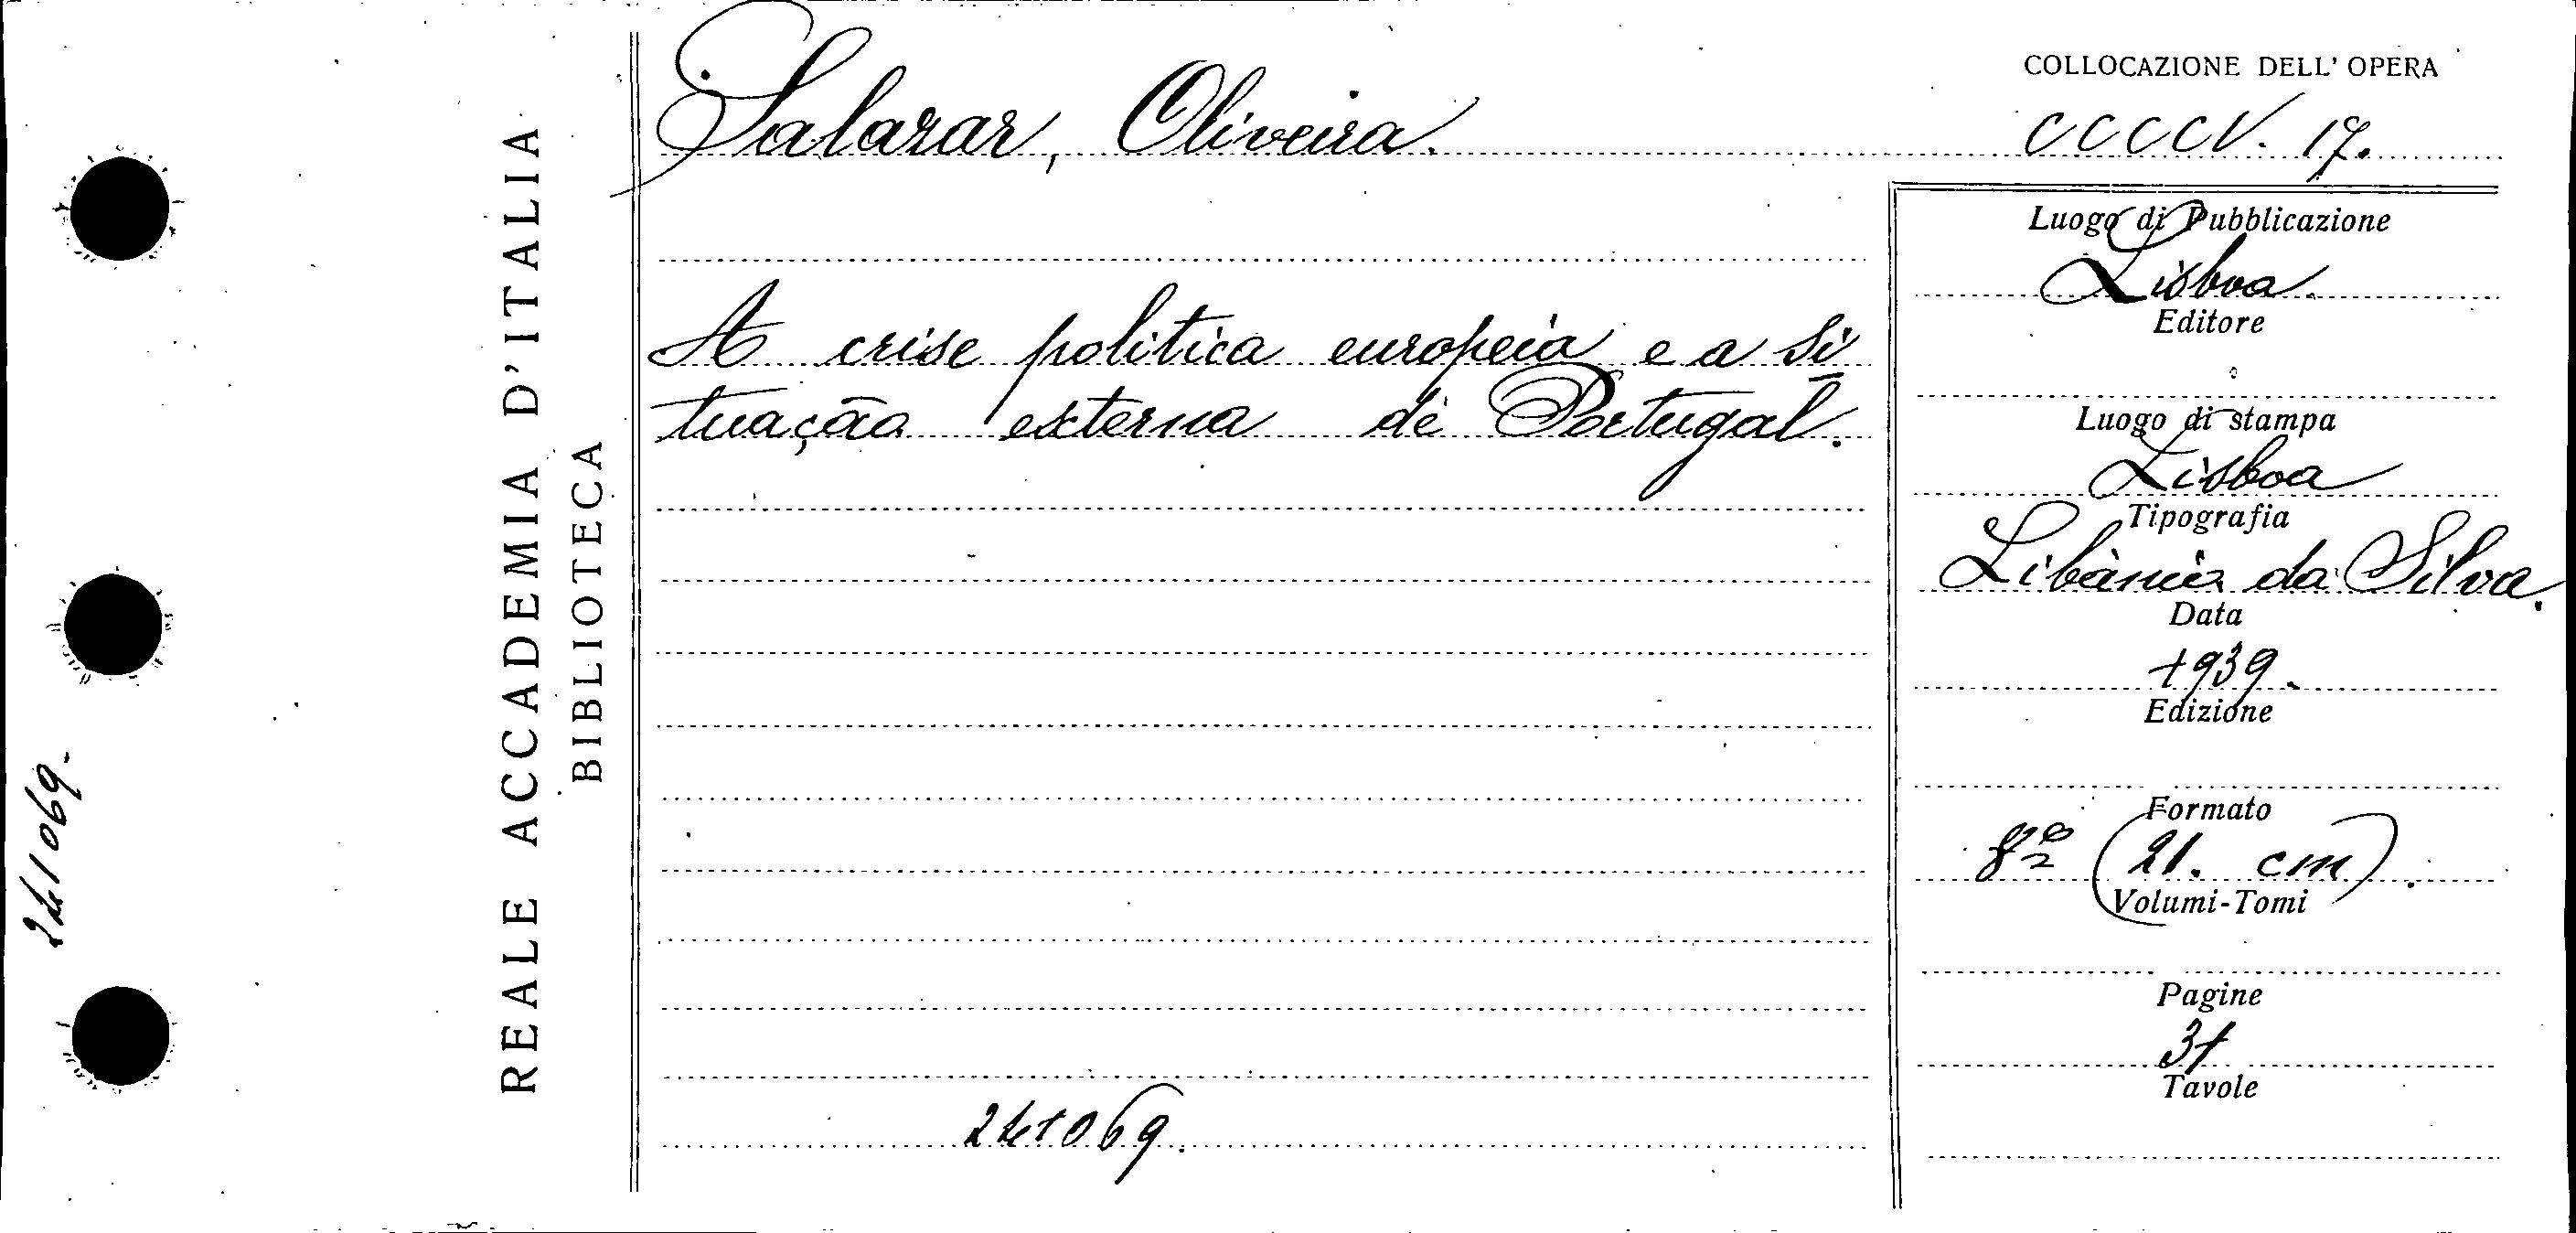 REALE ACCADEMIA D'ITALIA
BIBLIOTECA
Salazar, Oliveira.
A crise politica europeia e a si
tuação externa de Portugal.
241069.
COLLOCAZIONE DELL' OPERA
CCCCV. 17.
Luogo di Pubblicazione
Lisboa.
Editore
Luogo di stampa
Lisboa
Tipografia
Libânio da Silva.
Data
1939.
Edizione
Formato
8º (21. cm).
Volumi-Tomi
Pagine
31
Tavole
241069-